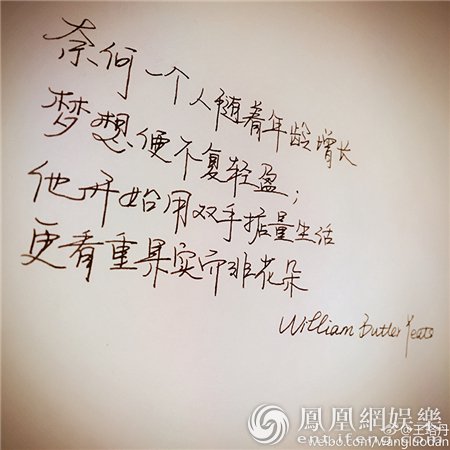 奈何一个人随着年龄增长
梦想便不复轻盈；
他开始用双手掂量生活
更看重果实而非花朵
William Butler Yeats
鳳凰網娛樂
@王珞丹
ent.ifeng.com
weibo.com/wangluodan